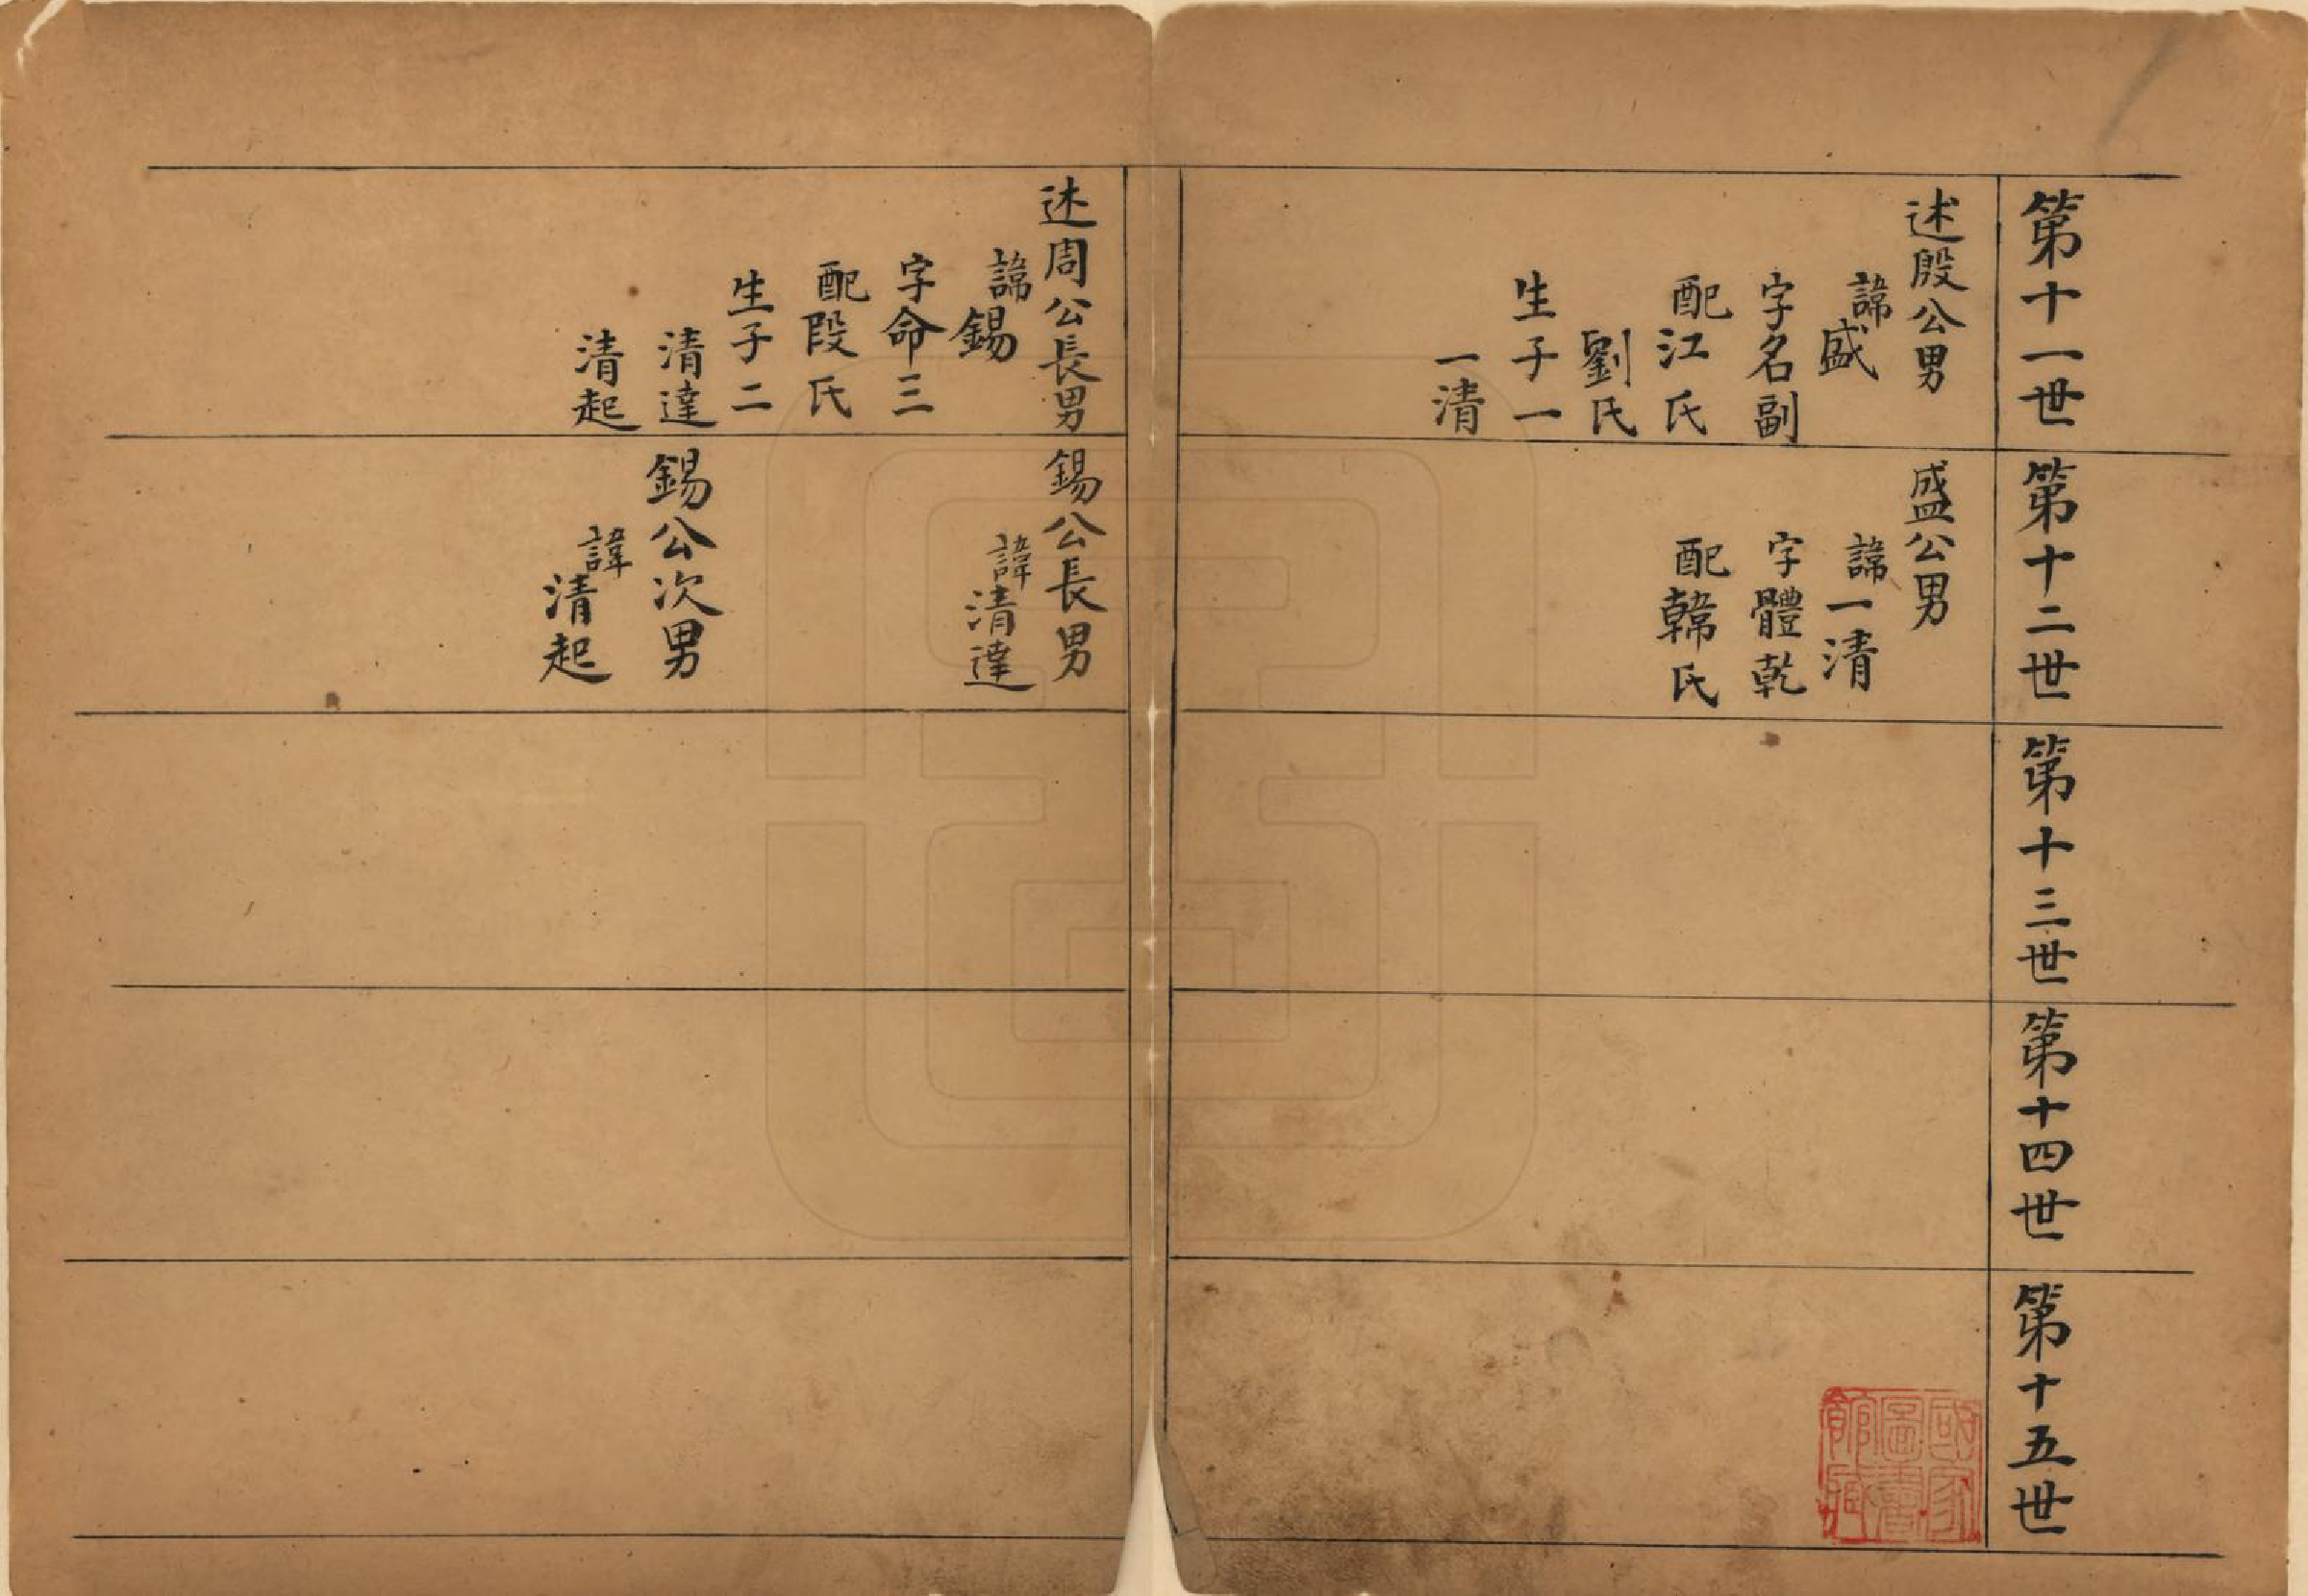 第十一世
述殷公男
諱盛
字名副
配江氏
劉氏
生子一
一清
述周公長男
諱錫
字命三
配段氏
生子二
清達
清起
第十二世
盛公男
諱一清
字體乾
配韓氏
錫公長男
諱清達
錫公次男
諱清起
第十三世
第十四世
第十五世
國家
圖書
館藏